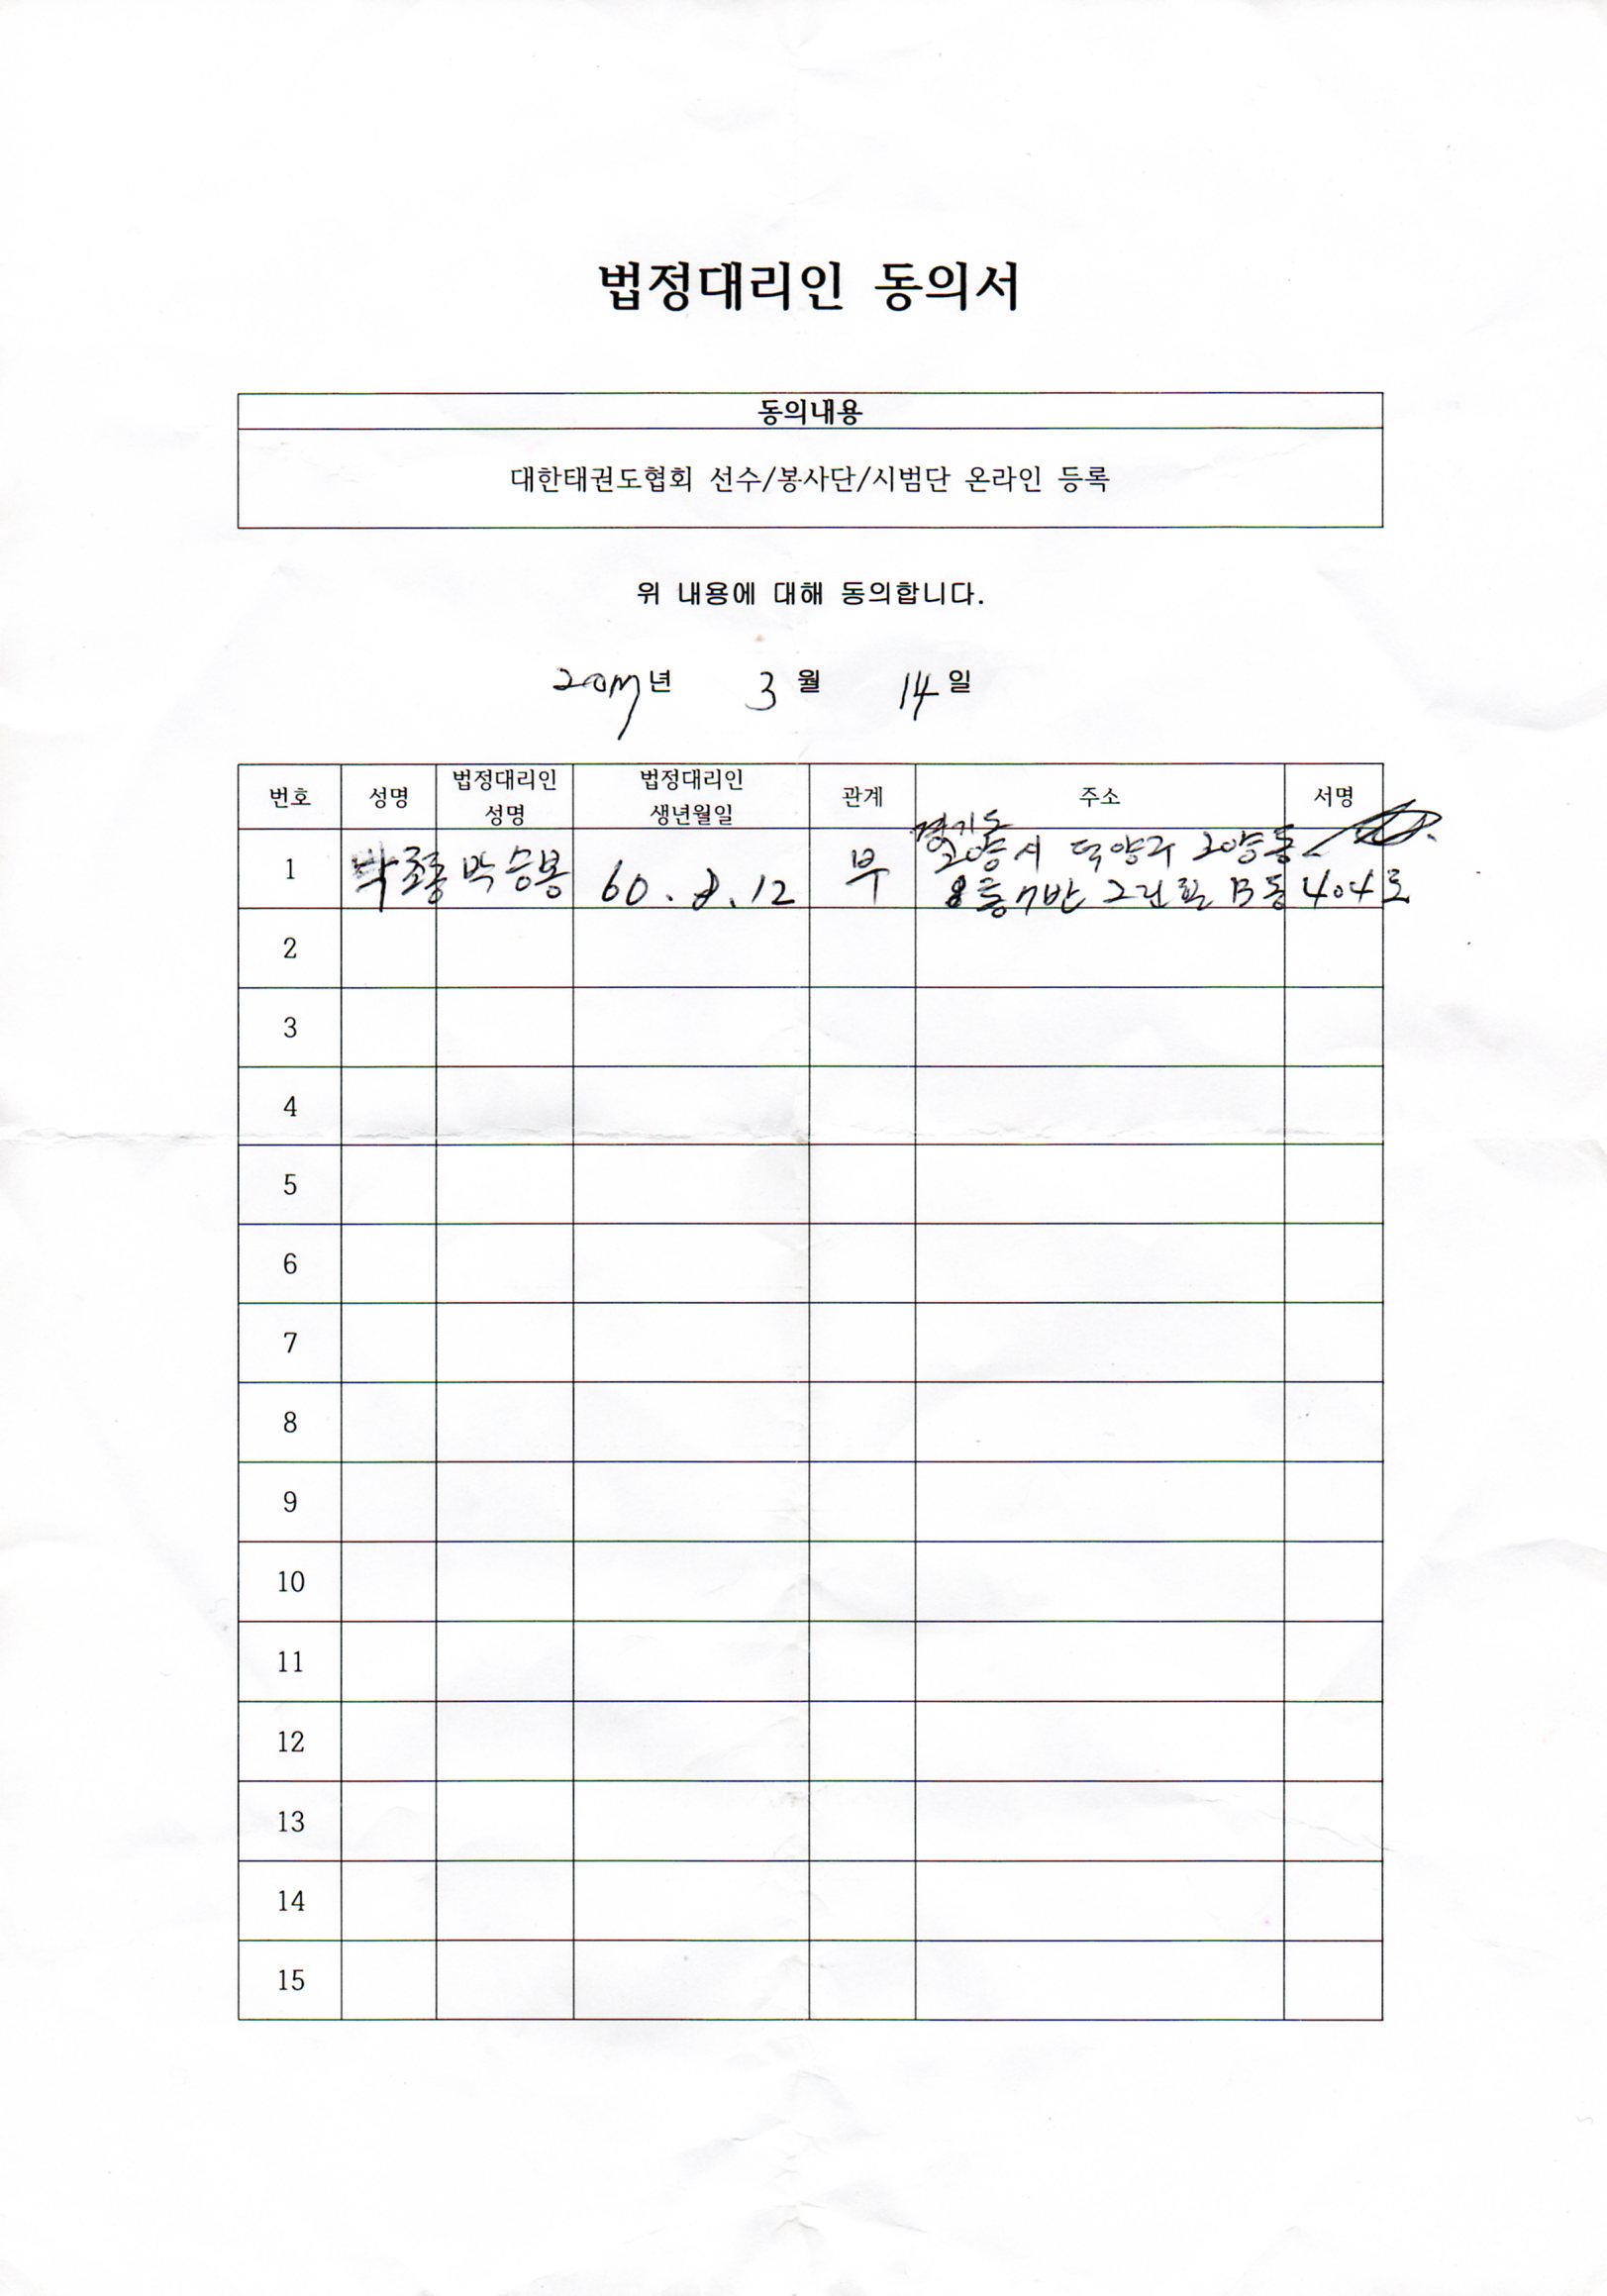 법정대리인 동의서
동의내용
대한태권도협회 선수/봉사단/시범단 온라인 등록
위 내용에 대해 동의합니다.
2017년 3월 14일
번호 성명 법정대리인 성명 법정대리인 생년월일 관계 주소 서명
1 박 박승봉 60.8.12 부 경기도
고양시 덕양구 고양동
통7반 그린 B동 404호
2
3
4
5
6
7
8
9
10
11
12
13
14
15